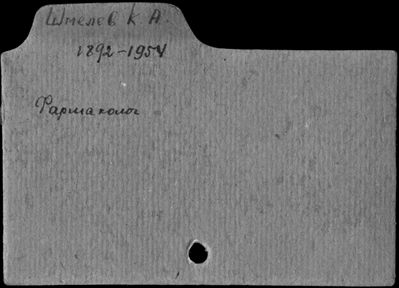 Шмелев К. А.
1892-1954
Фармаколог